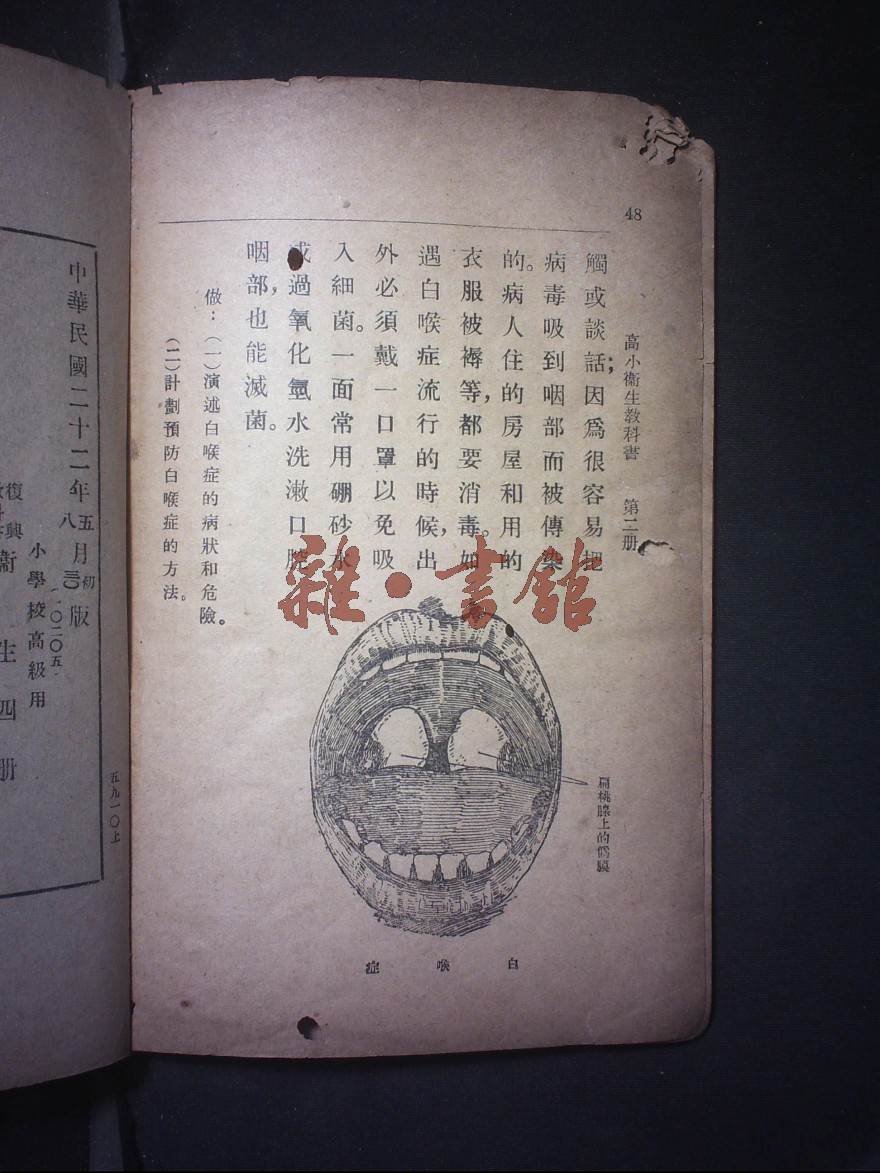 48
高小衞生教科書 第二册
觸或談話;因爲很容易把
病毒吸到咽部而被傳染
的。病人住的房屋和用的
衣服被褥等,都要消毒。如
遇白喉症流行的時候,出
外必須戴一口罩以免吸
入細菌。一面常用硼砂水
或過氧化氫水洗漱口腔
咽部,也能滅菌。
做:(一)演述白喉症的病狀和危險。
(二)計劃預防白喉症的方法。
扁桃腺上的僞膜
白喉症
雜·書館
五九一〇上
中華民國二十二年五月初版
八
(一〇二〇五)
小學校高級用
復興
衞生四册